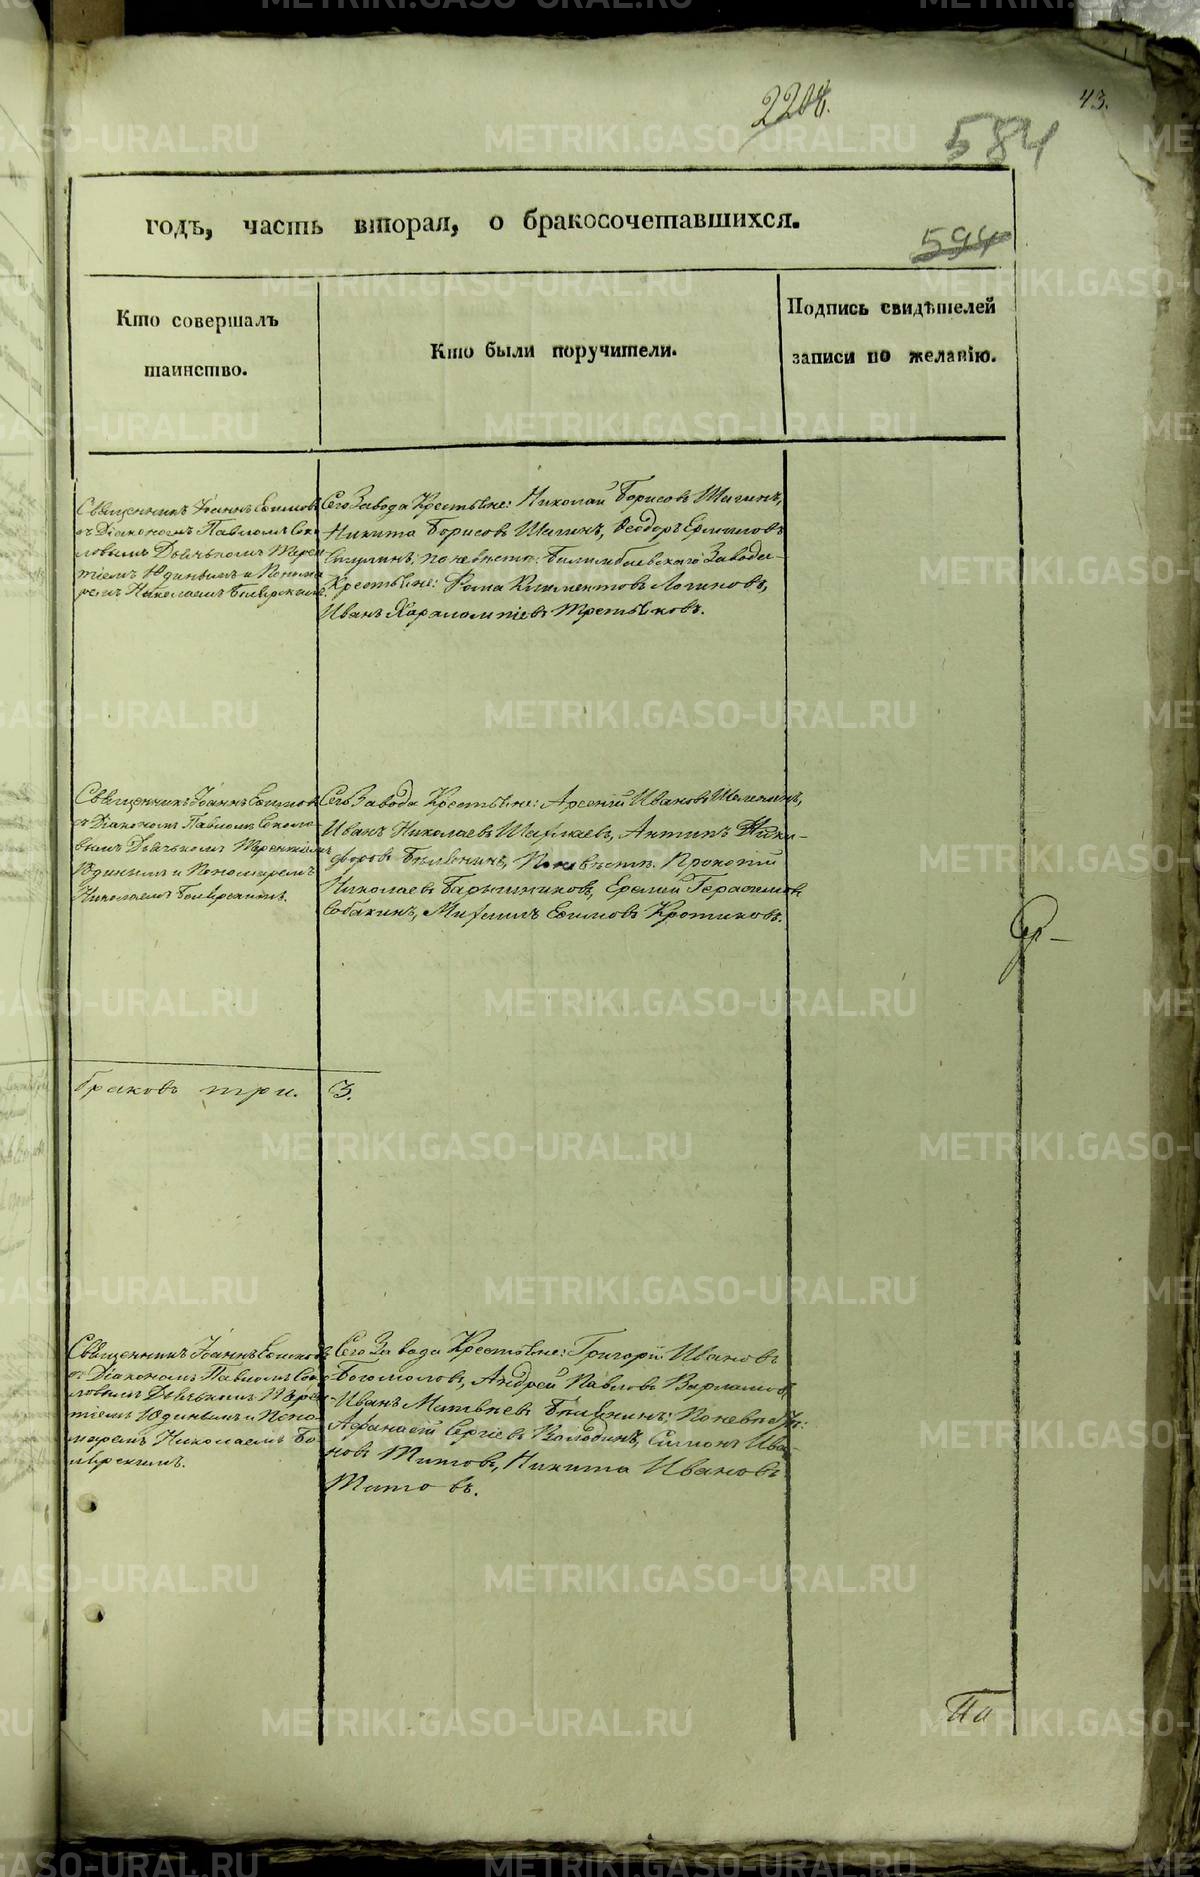 2208.
43.
584
годъ, часть вторая, о бракосочетавшихся.
594
Кто совершалъ
таинство.
Кто были поручители.
Подпись свидѣтелей
записи по желанію.
Священникъ Іоаннъ Ефимовъ
съ Діакономъ Павломъ Соко-
ловымъ Дьячькомъ Терен
тіемъ Юдинымъ и Понома
ремъ Николаемъ
Сего Завода Крестьяне: Николай Борисовъ Шагинъ,
Никита Борисовъ Шагинъ, Ѳеодоръ Ермиловъ
по невѣстѣ: Билимбаевскаго Завода
Крестьяне: Фома Климентовъ Логиновъ,
Иванъ Харалампіевъ Третьяковъ.
Священникъ Іоаннъ Ефимовъ
съ Діакономъ Павломъ Соколо-
вымъ Дьячькомъ Терентіемъ
Юдинымъ и Пономаремъ
Николаемъ
Сего Завода Крестьяне: Арсеній Ивановъ
Иванъ Николаевъ Антипъ Ники-
форовъ По невѣстѣ: Прокопій
Николаевъ Барышниковъ, Еремій Герасимовъ
Собакинъ, Михаилъ Ефимовъ Кротиковъ.
браковъ три. 3.
Священникъ Іоаннъ Ефимовъ
съ Діакономъ Павломъ Соко-
ловымъ Дьячькомъ Терен
тіемъ Юдинымъ и Поно-
маремъ Николаемъ
Сего Завода Крестьяне: Григорій Ивановъ
Богомоловъ, Андрей Павловъ Варламовъ,
Иванъ Матвѣевъ По невѣстѣ:
Афанасій Сергѣевъ Колобинъ, Симонъ Ива-
новъ Титовъ, Никита Ивановъ
Титовъ.
METRIKI.GASO-URAL.RU